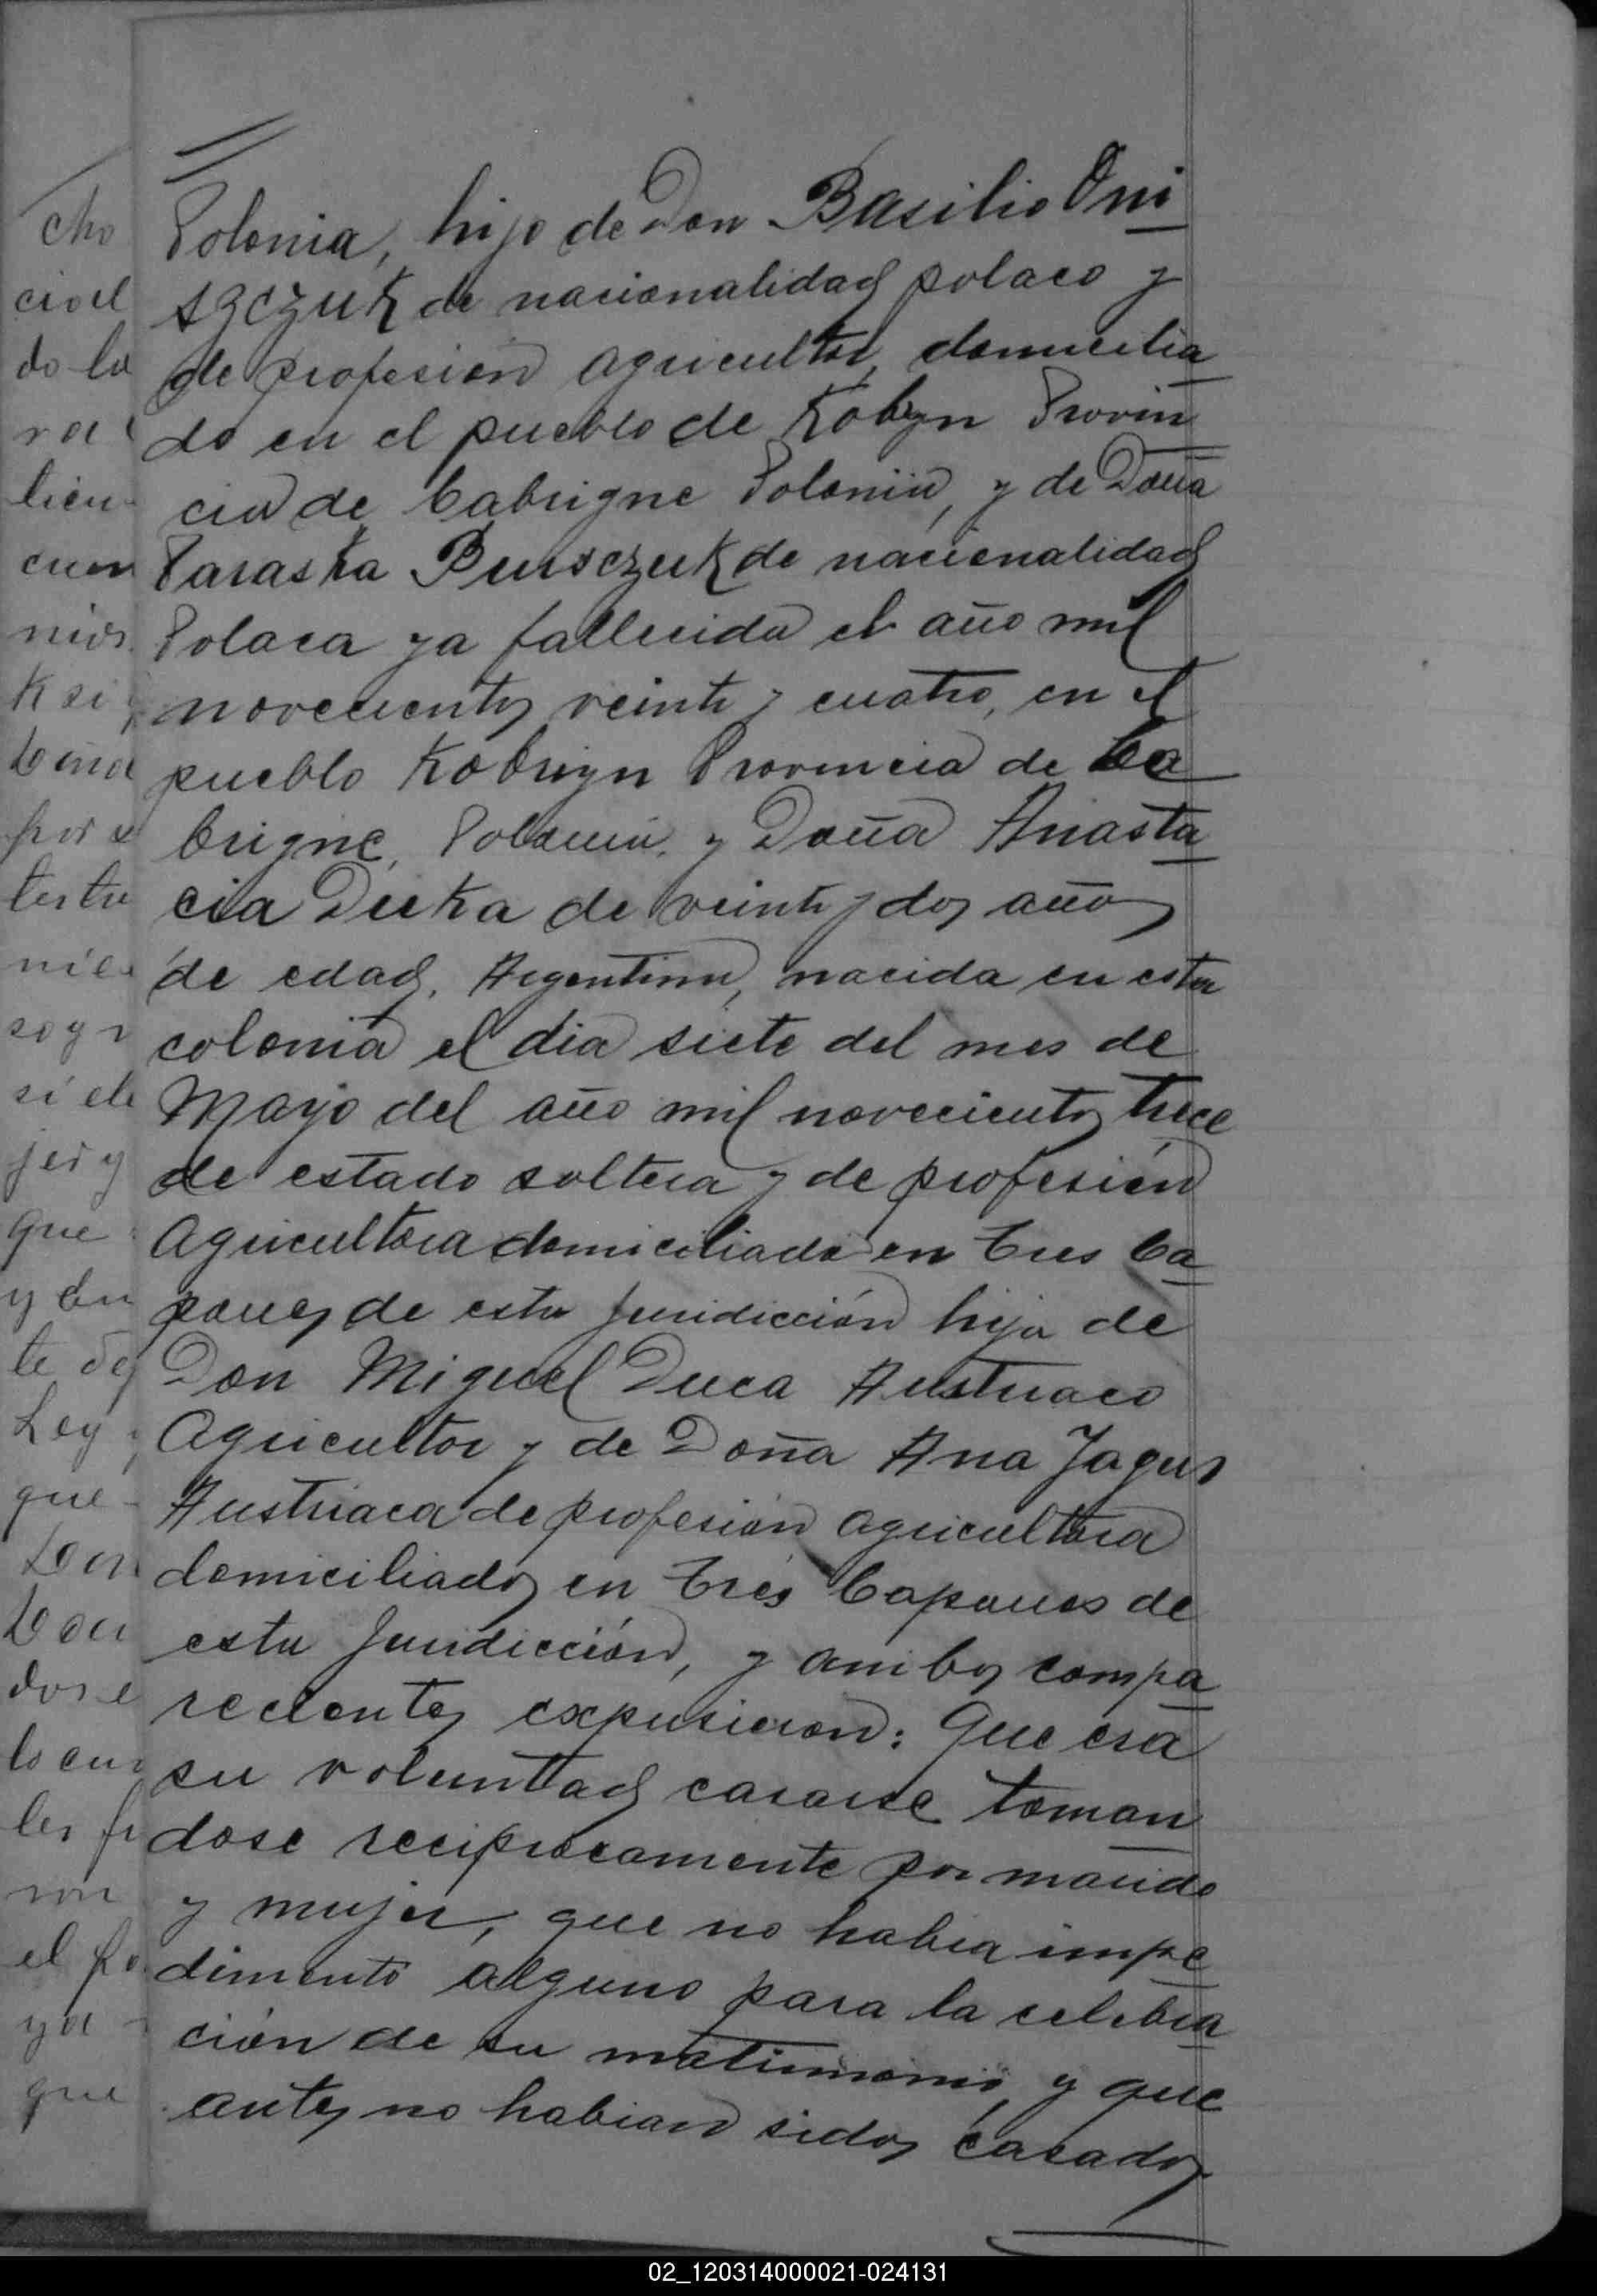 Polonia, hijo de Don Basilio Oni
szczuk de nacionalidad polaco y
de profesión agricultor, domicilia
do en el pueblo de Kobryn Provin
cia de Cabrigne Polonia, y de Doña
Paraska de nacionalidad
Polaca ya fallecida el año mil
novecientos veinte y cuatro, en el
pueblo Kobrigyn Provincia de Ca
brigne, Polonia, y Doña Anasta
cia Duka de veinte y dos años
de edad, Argentina, nacida en esta
colonia el dia siete del mes de
Mayo del año mil novecientos trece
de estado soltera y de profesión
Agricultora domiciliada en Tres Ca
pones de esta Juridicción hija de
Don Miguel Duca Austriaco
Agricultor y de Doña Ana Jagus
Austriaca de profesión agricultora
domiciliados en Tres Capones de
esta Juridicción, y ambos compa
recientes expusieron: Que era
su voluntad casarse toman
dose reciprocamente por marido
y mujer, que no habia impe
dimento alguno para la celebra
ción de su matrimonio, y que
antes no habian sidos casados
02_120314000021-024131